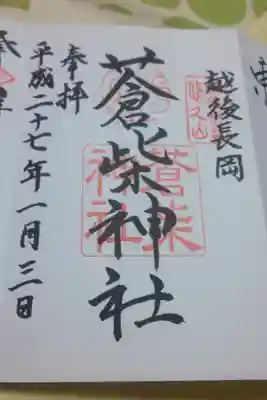 越後長岡
蒼柴神社
奉拝
平成二十七年一月三日
蒼柴
神社